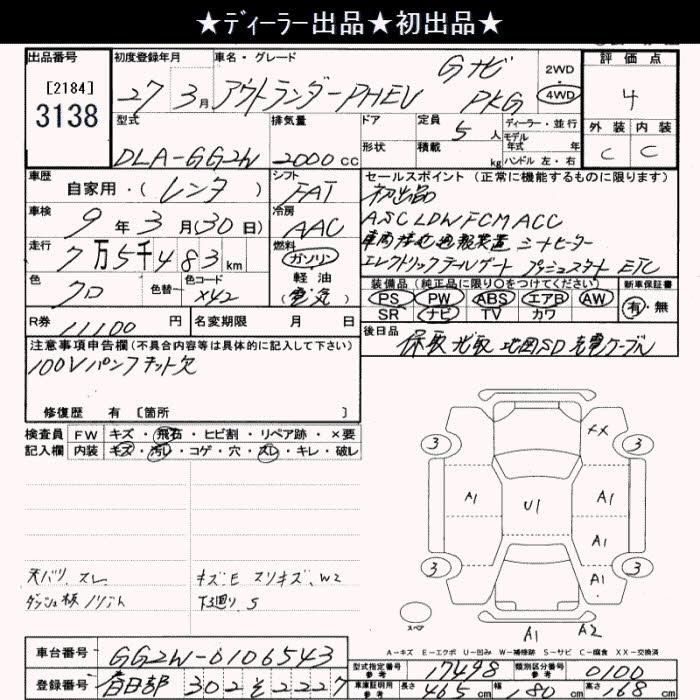 ★ディーラー出品★初出品★
出品番号 初度登録年月 車名・グレード 評価点
[2184] 27年3月 アウトランダーPHEV Gナビ PKG 2WD 4WD 4
3138
型式 排気量 ドア 定員 5人 ディーラー・並行 外装 内装
モデル年式 年
DLA-GG2W 2000cc 形状 積載 kg ハンドル 左・右 C C
車歴 シフト セールスポイント(正常に機能するものに限ります)
自家用・(レンタ) FAT 初出品
車検 冷房 ASC LDW FCM ACC
9年3月(30日) AAC 車両接近通報装置 シートヒーター
走行 燃料 エレクトリックテールゲート プッシュスタート ETC
7万5千483km ガソリン
色 色替 色コード 軽油 装備品(純正品に限り○をつけてください) 新車保証書
クロ X42 (電気) PS PW ABS エアB AW 有・無
SR ナビ TV カワ
R券 11100円 名変期限 月 日 後日品
保取 地図SD 充電ケーブル
注意事項申告欄(不具合内容等は具体的に記入して下さい)
100Vパンフキット欠
修復歴 有 [箇所 ]
検査員 FW キズ・飛石・ヒビ割・リペア跡・×要
記入欄 内装 キズ・汚レ・コゲ・穴・スレ・キレ・破レ
XX
3 3
A1 U1 A1
A1
3 A1 3
天バリ スレ キズE スリキズ、W2
ダッシュ板 ノリコン 下廻り S
スペア
A1 A2
A-キズ E-エクボ U-凹み W-補修跡 S-サビ C-腐食 XX-交換済
車台番号 GG2W-0106543 型式指定番号 参考 17498 類別区分番号 参考 0100
登録番号 春日部 302 そ 2227 車庫証明用 参考 長さ 465cm 幅 180cm 高さ 168cm